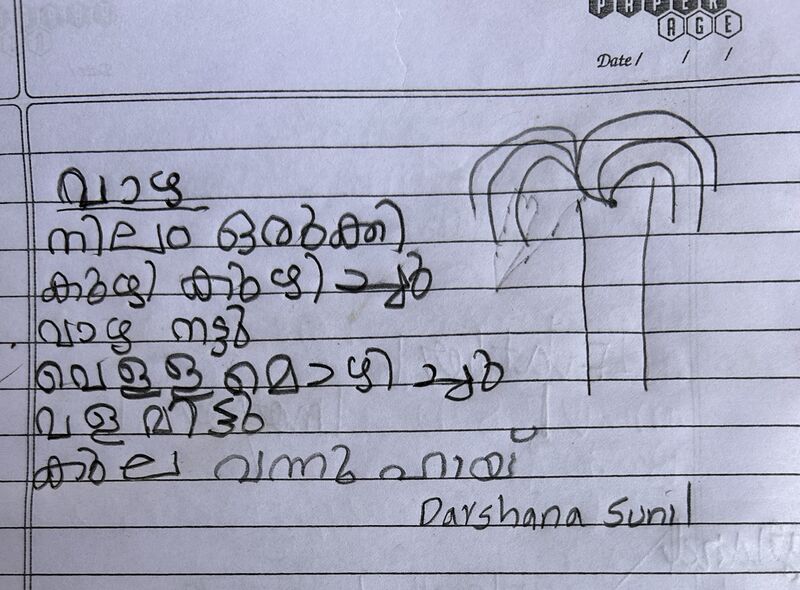 PAPER
AGE
Date / / /
വാഴ
നിലം ഒരുക്കി
കുഴി കുഴി ച്ചു
വാഴ നട്ടു
വെളള മൊഴി ച്ചു
വള വിട്ടു
കുല വന്നു ഹായ്
Darshana Sunil